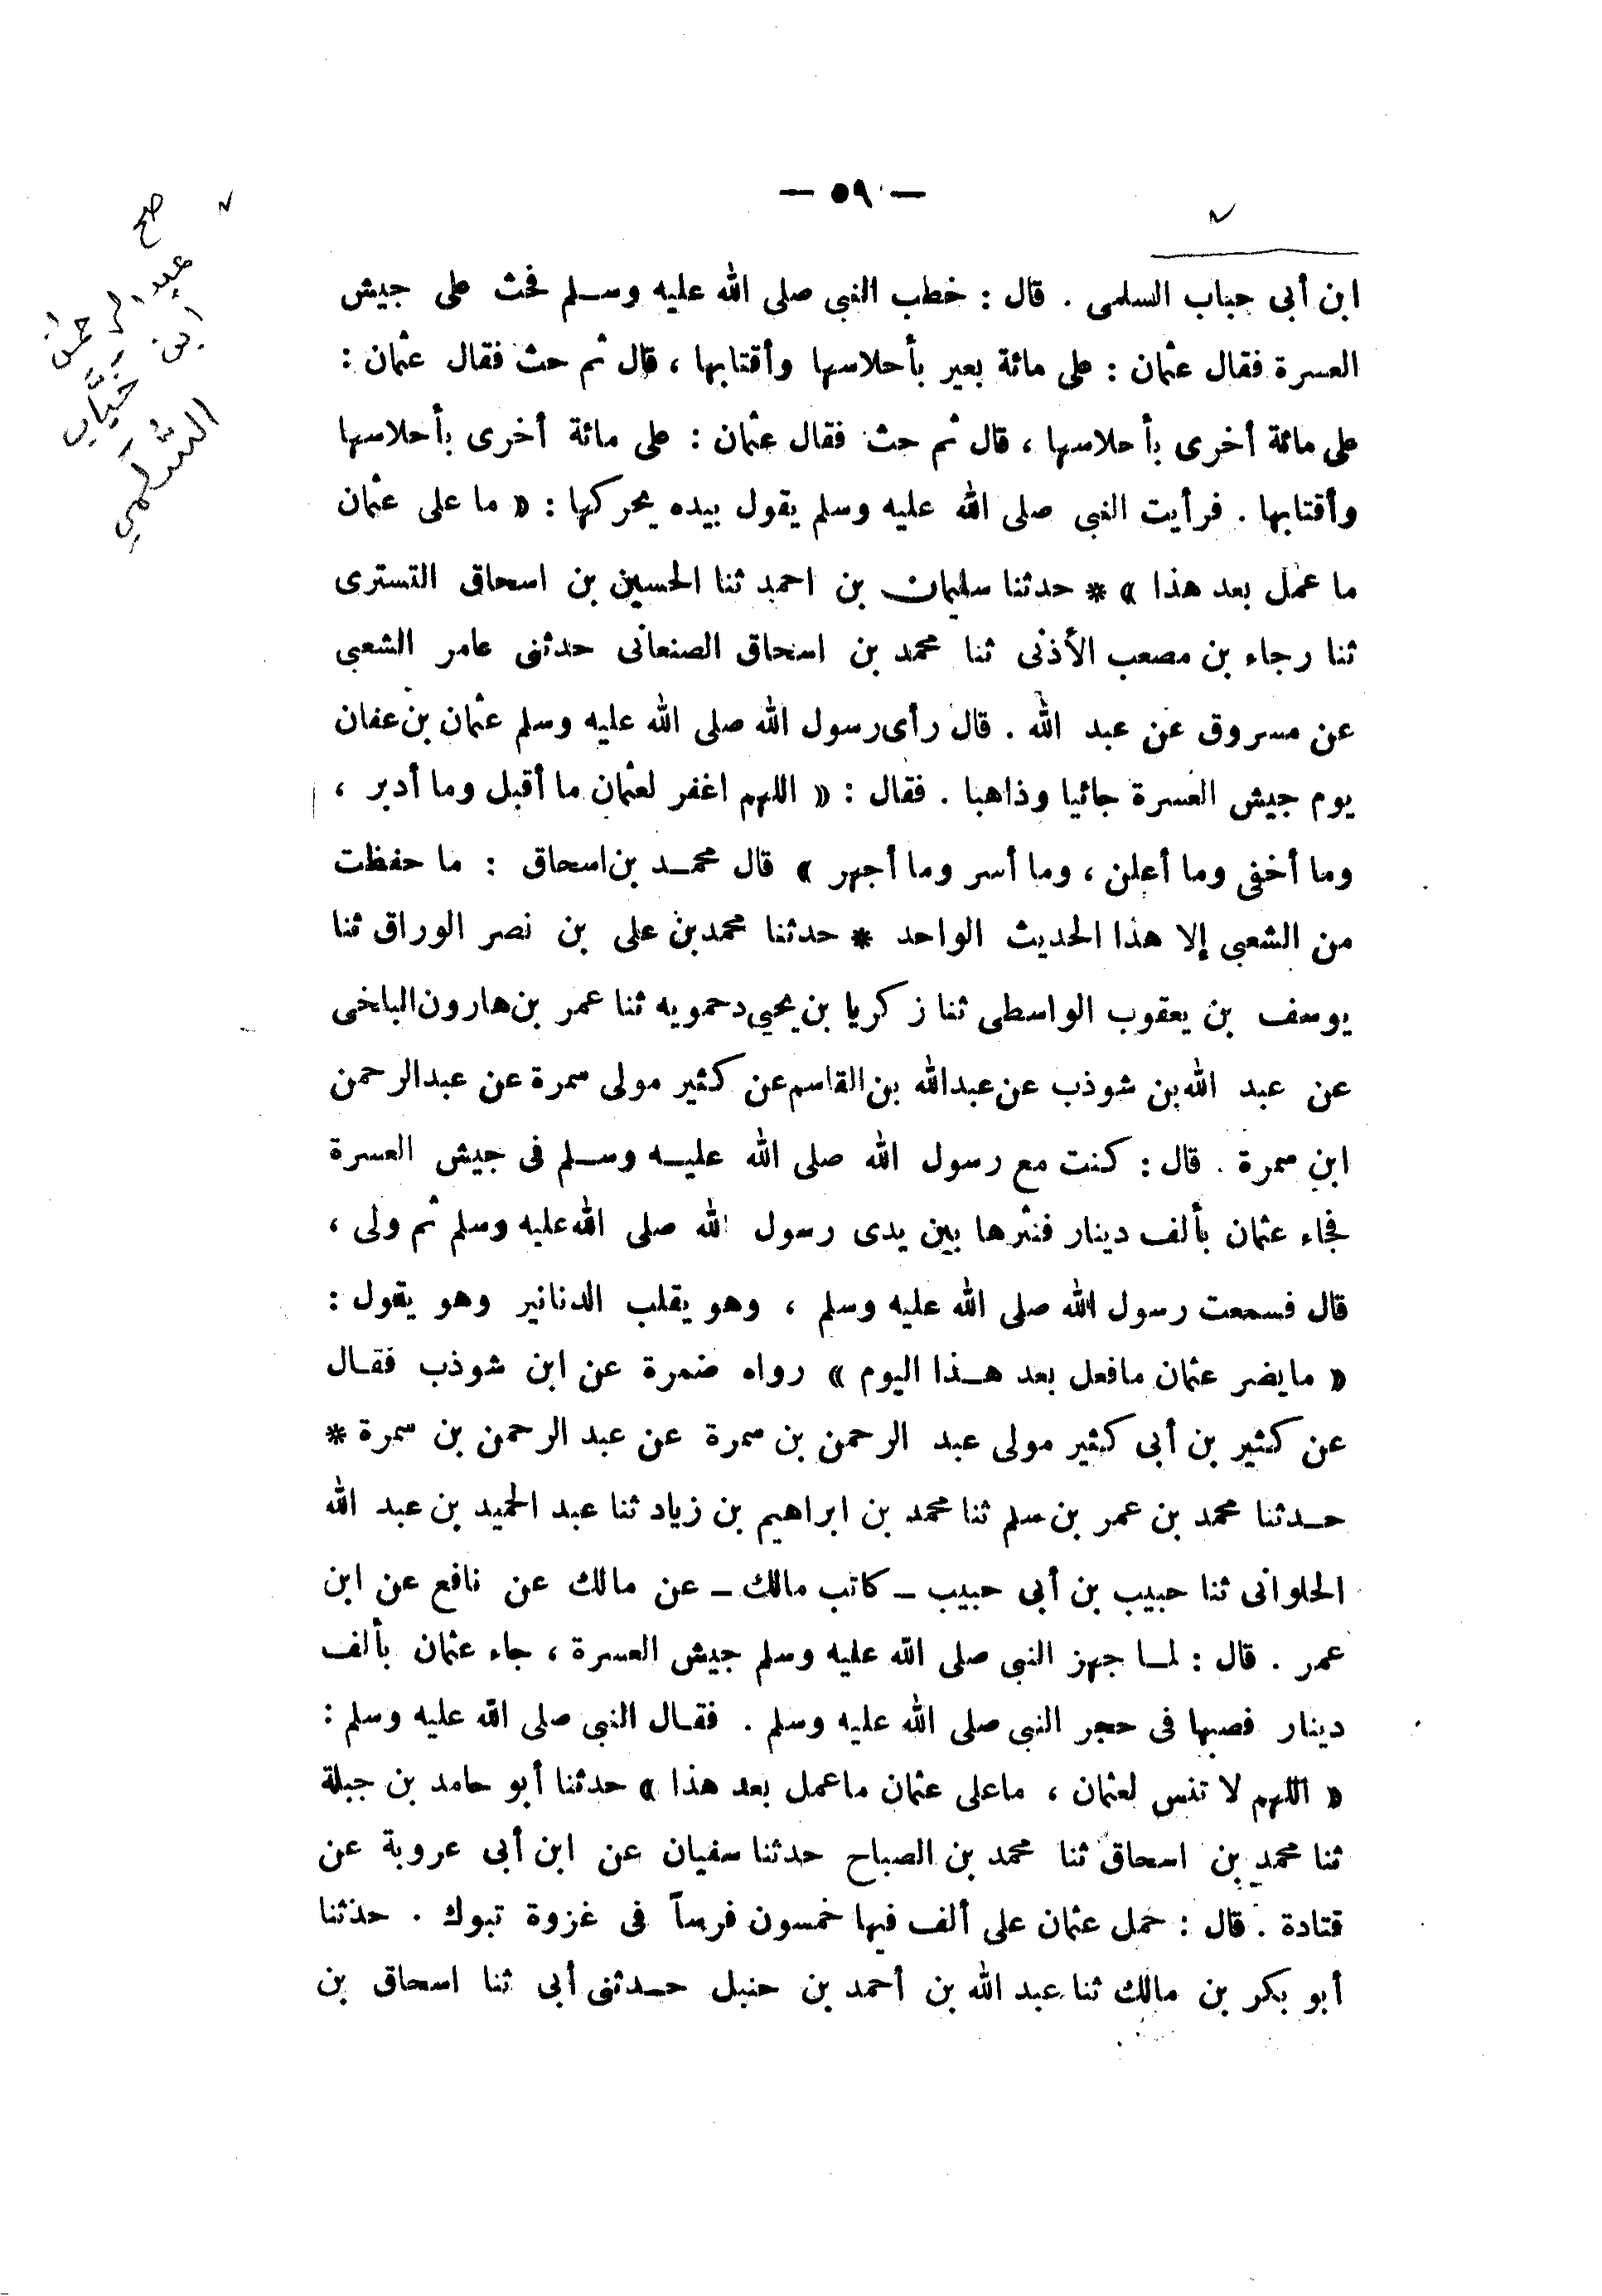 — ٥٩ —
ابن أبى حباب السلمى . قال : خطب النبى صلى الله عليه وسلم فحث على جيش
العسرة فقال عثمان : على مائة بعير بأحلاسها وأقتابها ، قال ثم حث فقال عثمان :
على مائة أخرى بأحلاسها ، قال ثم حث فقال عثمان : على مائة أخرى بأحلاسها
وأقتابها . فرأيت النبى صلى الله عليه وسلم يقول بيده يحركها : « ما على عثمان
ما عمل بعد هذا » * حدثنا سليمان بن احمد ثنا الحسين بن اسحاق التسترى
ثنا رجاء بن مصعب الأذنى ثنا محمد بن اسحاق الصنعانى حدثنى عامر الشعبى
عن مسروق عن عبد الله . قال رأى رسول الله صلى الله عليه وسلم عثمان بن عفان
يوم جيش العسرة جائيا وذاهبا . فقال : « اللهم اغفر لعثمان ما أقبل وما أدبر ،
وما أخفى وما أعلن ، وما أسر وما أجهر » قال محمد بن اسحاق : ما حفظت
من الشعبى إلا هذا الحديث الواحد * حدثنا محمد بن على بن نصر الوراق ثنا
يوسف بن يعقوب الواسطى ثنا زكريا بن يحيى دحمويه ثنا عمر بن هارون الباخى
عن عبد الله بن شوذب عن عبدالله بن القاسم عن كثير مولى سمرة عن عبدالرحمن
ابن سمرة . قال : كنت مع رسول الله صلى الله عليه وسلم فى جيش العسرة
فجاء عثمان بألف دينار فنثرها بين يدى رسول الله صلى الله عليه وسلم ثم ولى ،
قال فسمعت رسول الله صلى الله عليه وسلم ، وهو يقلب الدنانير وهو يقول :
« مايضر عثمان مافعل بعد هذا اليوم » رواه ضمرة عن ابن شوذب فقال
عن كثير بن أبى كثير مولى عبد الرحمن بن سمرة عن عبد الرحمن بن سمرة *
حدثنا محمد بن عمر بن سلم ثنا محمد بن ابراهيم بن زياد ثنا عبد الحميد بن عبد الله
الحلوانى ثنا حبيب بن أبى حبيب ـ كاتب مالك ـ عن مالك عن نافع عن ابن
عمر . قال : لما جهز النبى صلى الله عليه وسلم جيش العسرة ، جاء عثمان بألف
دينار فصبها فى حجر النبى صلى الله عليه وسلم . فقال النبى صلى الله عليه وسلم :
« اللهم لا تنس لعثمان ، ماعلى عثمان ماعمل بعد هذا » حدثنا أبو حامد بن جبلة
ثنا محمد بن اسحاق ثنا محمد بن الصباح حدثنا سفيان عن ابن أبى عروبة عن
قتادة . قال : حمل عثمان على ألف فيها خمسون فرساً فى غزوة تبوك . حدثنا
أبو بكر بن مالك ثنا عبد الله بن أحمد بن حنبل حدثنى أبى ثنا اسحاق بن
صح
عبد الرحمن
ابن خَبَّاب
السُّلَمي